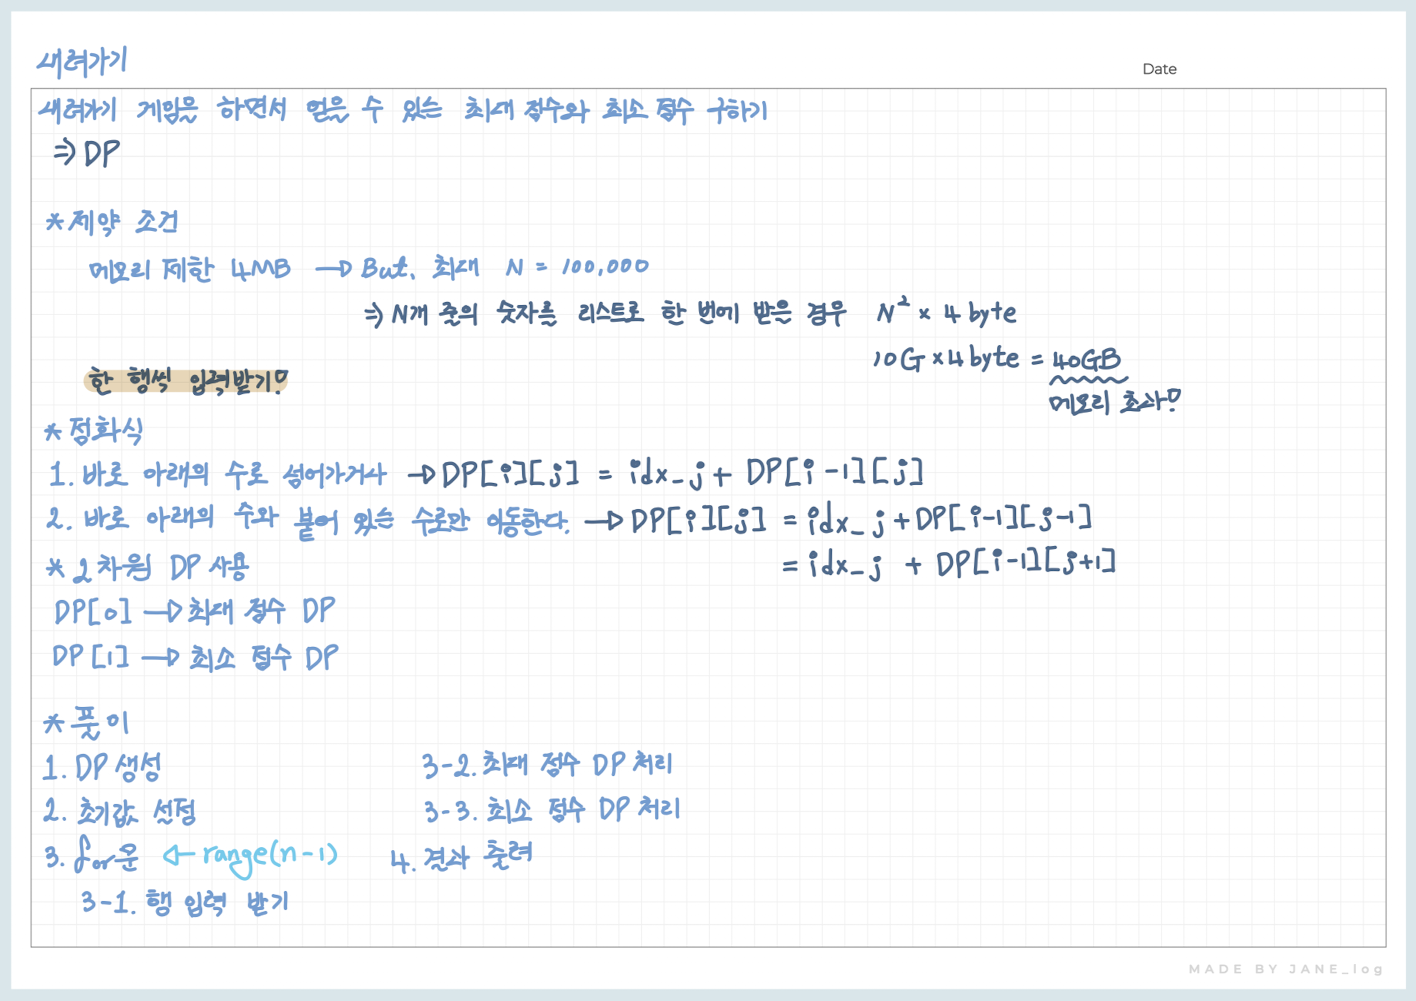 내려가기
Date
내려가기 게임을 하면서 얻을 수 있는 최대 점수와 최소 점수 구하기
⇒ DP
* 제약 조건
메모리 제한 4MB → But, 최대 N = 100,000
⇒ N개 줄의 숫자를 리스트로 한 번에 받을 경우 N² x 4 byte
10G x 4 byte = 40GB
메모리 초과!
한 행씩 입력받기!
* 점화식
1. 바로 아래의 수로 넘어가거나 → DP[i][j] = idx_j + DP[i-1][j]
2. 바로 아래의 수와 붙어 있는 수로만 이동한다. → DP[i][j] = idx_j + DP[i-1][j-1]
= idx_j + DP[i-1][j+1]
* 2차원 DP 사용
DP[0] → 최대 점수 DP
DP[1] → 최소 점수 DP
* 풀이
1. DP 생성
2. 초기값 선정
3. for문 ← range(n-1)
3-1. 행 입력 받기
3-2. 최대 점수 DP 처리
3-3. 최소 점수 DP 처리
4. 결과 출력
MADE BY JANE_log